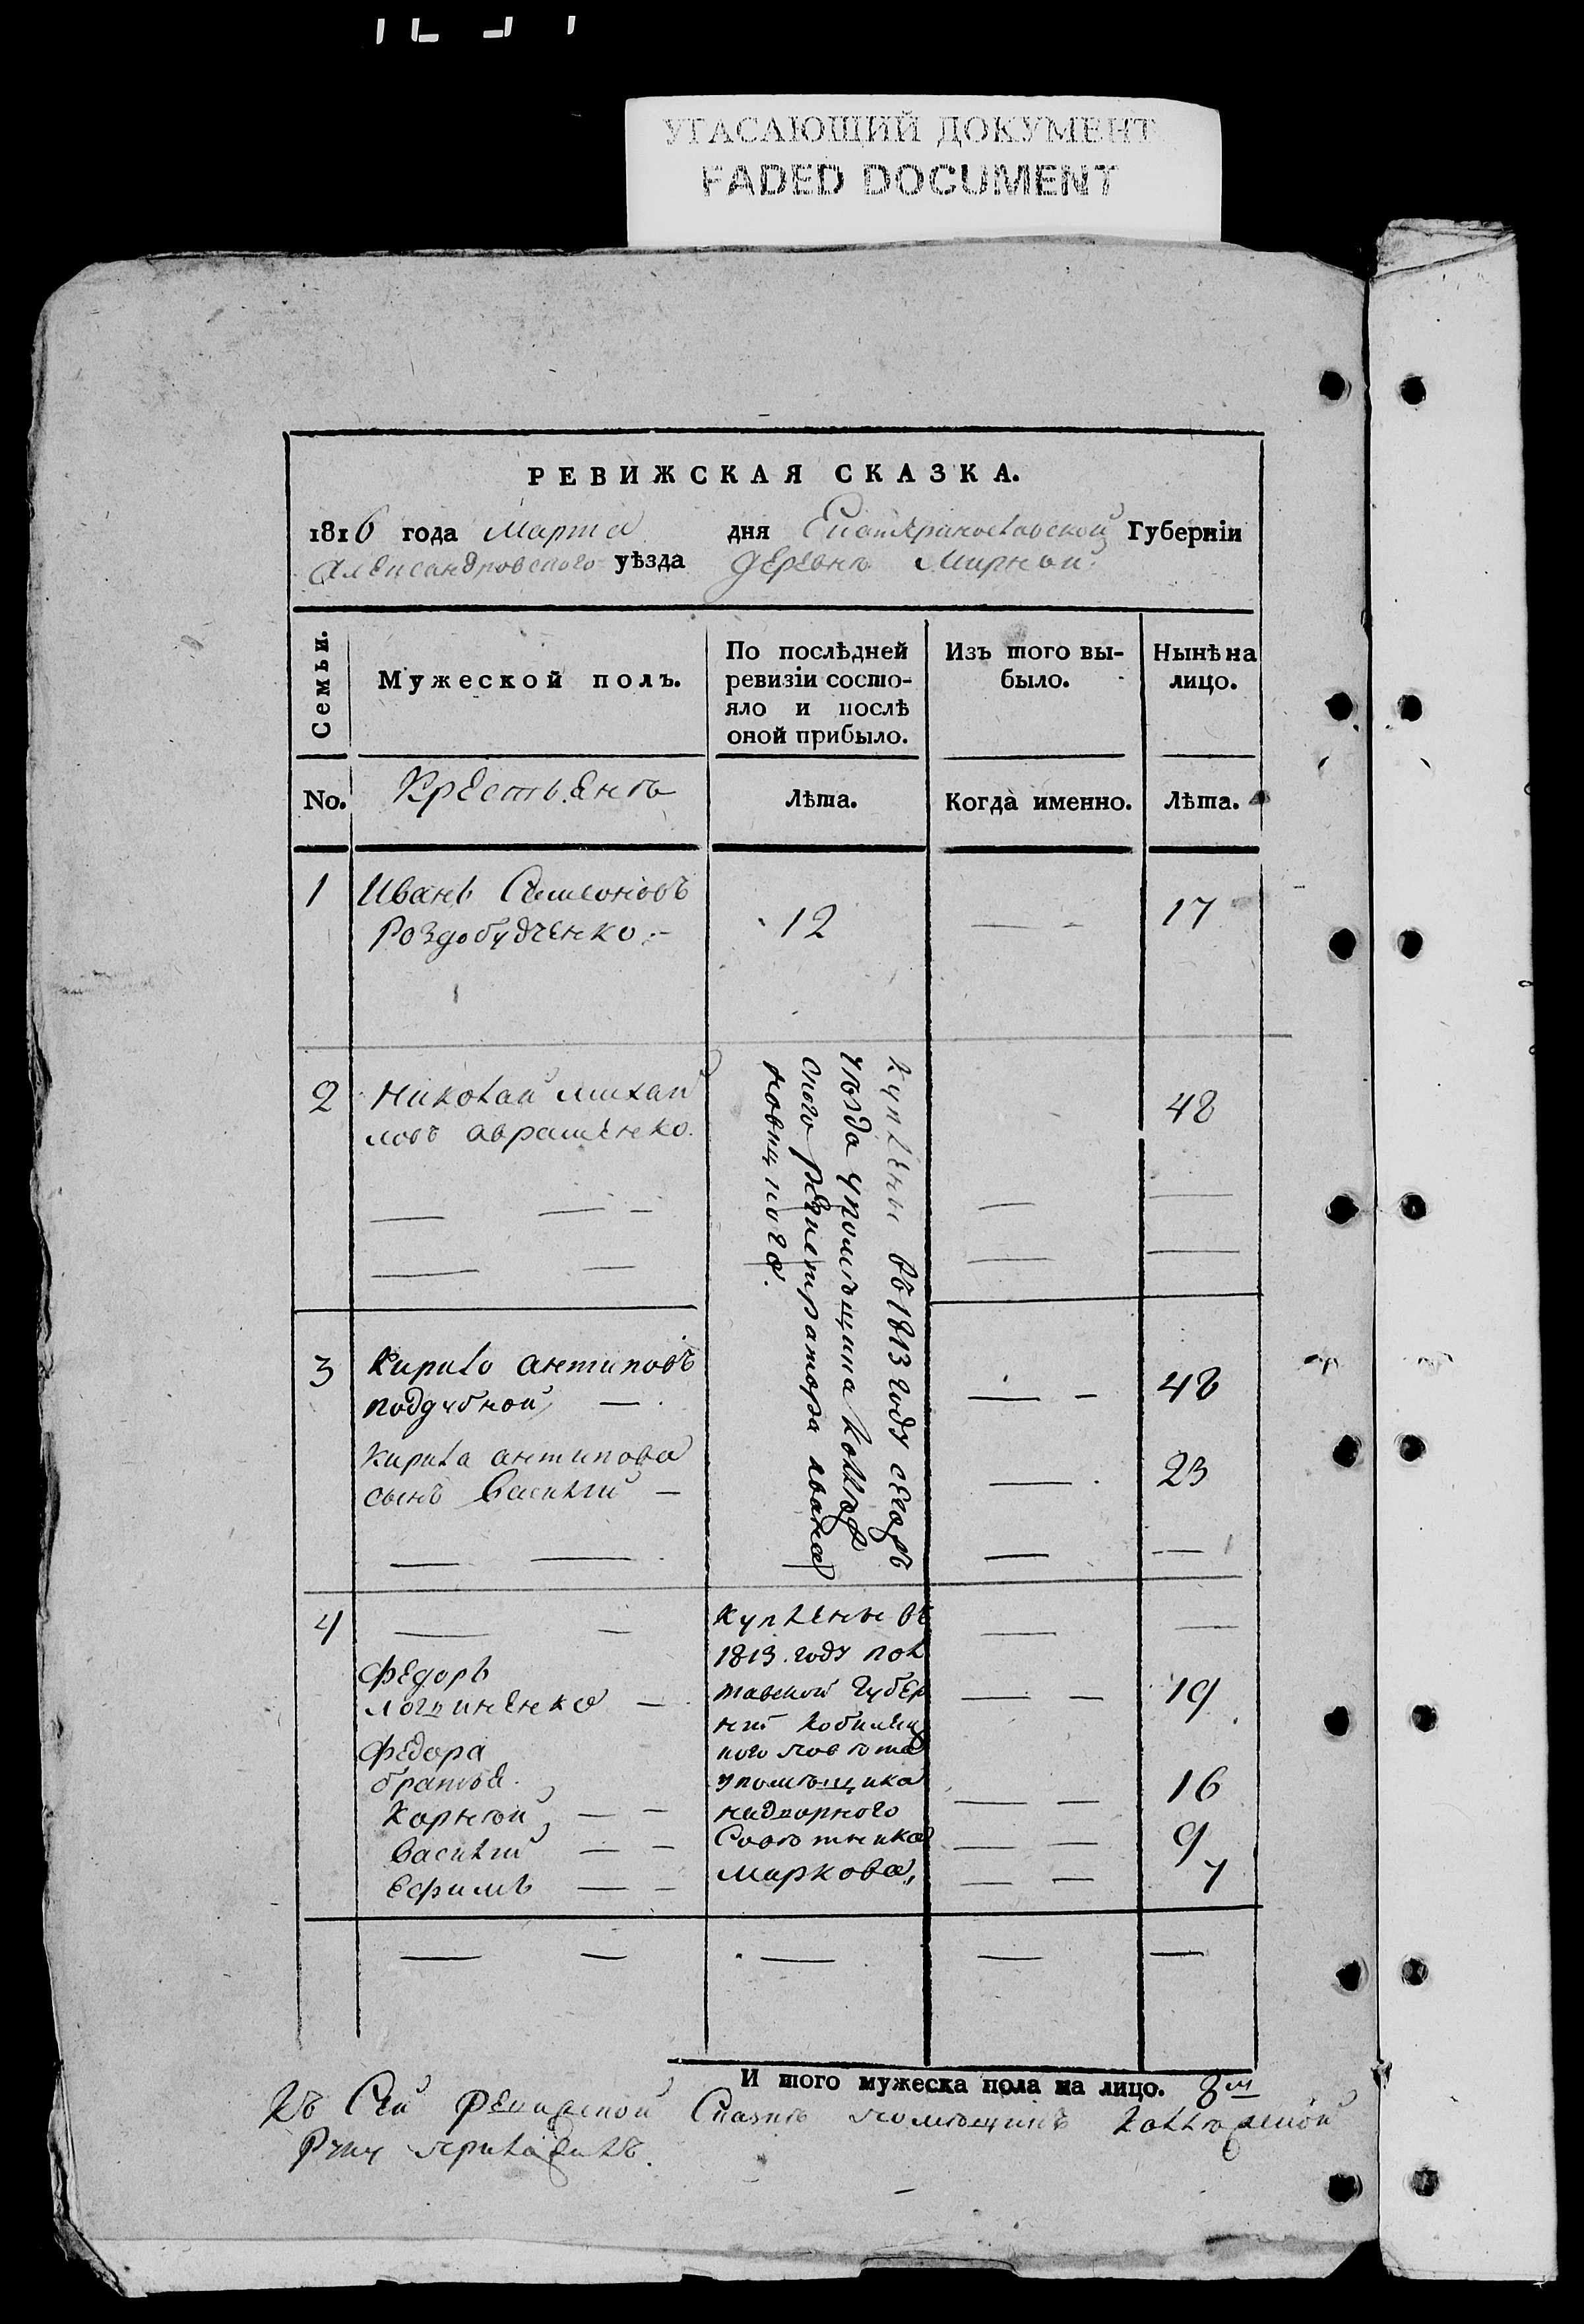 УГАСАЮЩИЙ ДОКУМЕНТ
FADED DOCUMENT
РЕВИЖСКАЯ СКАЗКА.
1816 года Марта дня Екатеринославской Губерніи
Александровского уѣзда деревнѣ Мирной
Семьи.
Мужеской полъ.
По послѣдней
ревизіи состо-
яло и послѣ
оной прибыло.
Изъ того вы-
было.
Нынѣ на
лицо.
No.
Крестьянъ
Лѣта.
Когда именно.
Лѣта.
1 Иванъ Семеновъ
Роздобудченко 12 17
2 Николай михай
ловъ авраменко 48
купленые въ 1813 году сегожъ
уѣзда упомѣщика коллеж
ского регистратора ивана
3 Кирило антиповъ
поддубной 48
Кирила антипова
сынъ Василий 23
4
Федоръ
логвиненко 19
Федора
братья
Корней 16
Василий 9
Ефимъ 7
Куплены въ
1813 году пол
тавской губер
ніи кобиляц
кого повѣта
упомѣщика
надворного
Совѣтника
Маркова,
И того мужеска пола на лицо. 8м
Къ Сей Ревижской Сказкѣ помѣщикъ
Руку приложилъ.